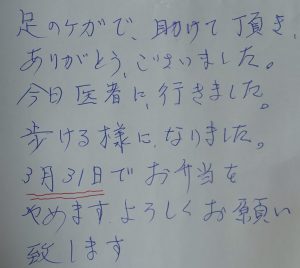 足のケガで、助けて頂き、
ありがとう、ございました。
今日医者に、行きました。
歩ける様に、なりました。
3月31日でお弁当を
やめます、よろしくお願い
致します